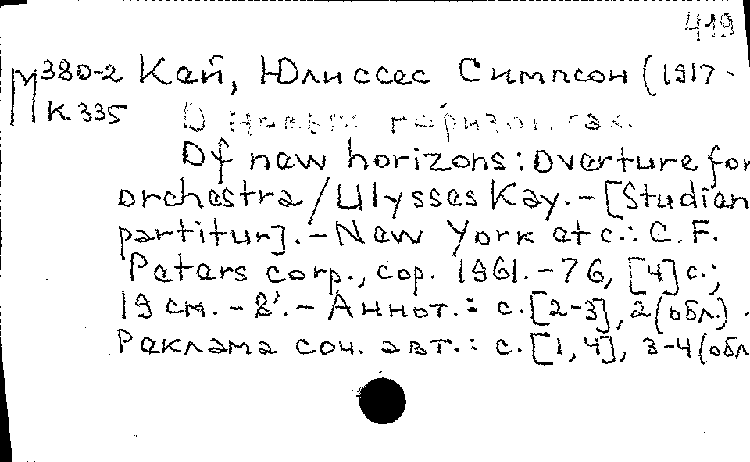 419
М380-2 Кей, Юлиссес Симпсон (1917-
К335 О новых горизонтах.
Of new horizons: Overture for
orchestra/Ulysses Kay.-[Studien
partitur].-New York etc.: C.F.
Peters corp., cop. 1961.-76, [4]с.;
19 см.-8'.-Аннот.: с.[2-3], 2(обл.).
Реклама соч. авт.: с.[1,4], 3-4(обл